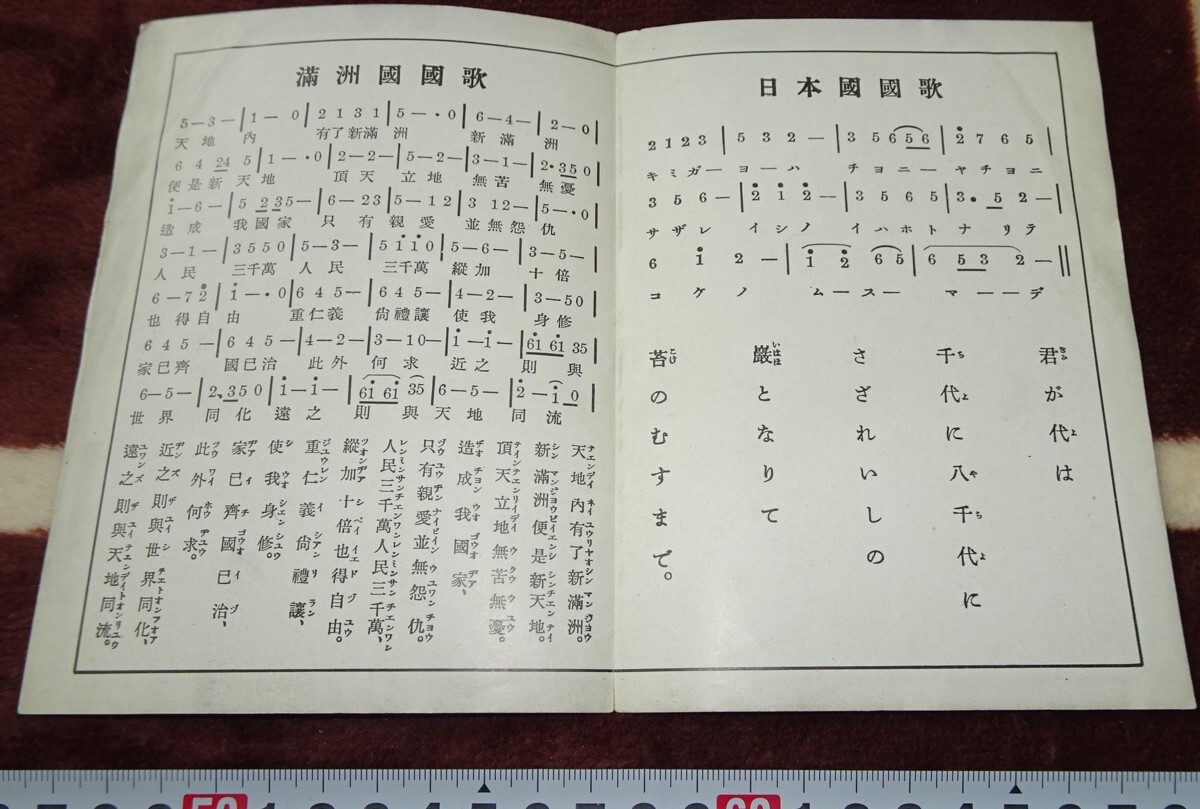 日本國國歌
2 1 2 3 | 5 3 2 — | 3 5 6 5 6 | 2 7 6 5 |
キミガーヨーハ チヨニーヤチヨニ
3 5 6 — | 2 1 2 — | 3 5 6 5 | 3• 5 2 — |
サザレ イシノ イハホトナリテ
6 1 2 — | 1 2 6 5 | 6 5 3 2 — ‖
コケノ ムースーマーーデ
君が代は
千代に八千代に
さざれいしの
巖となりて
苔のむすまで。
滿洲國國歌
5—3— | 1—0 | 2 1 3 1 | 5—•0 | 6—4— | 2—0 |
天地內 有了新滿洲 新滿洲
6 4 24 5 | 1—•0 | 2—2— | 5—2— | 3—1— | 2•350 |
便是新天地 頂天立地無苦無憂
1—6— | 5 235— | 6—23 | 5—12 | 3 12— | 5—•0 |
造成我國家只有親愛並無怨仇
3—1— | 3550 | 5—3— | 5110 | 5—6— | 3—5— |
人民三千萬人民三千萬縱加十倍
6—72 | 1—•0 | 645— | 645— | 4—2— | 3—50 |
也得自由重仁義尙禮讓使我身修
645— | 645— | 4—2— | 3—10— | 1—1— | 61 61 35
家已齊國已治此外何求近之則與
6—5— | 2 350 | 1—1— | 61 61 35 | 6—5— | 2—1 0 |
世界同化遠之則與天地同流
天地內有了新滿洲。
新滿洲便是新天地。
頂天立地無苦無憂。
造成我國家、
只有親愛並無怨仇。
人民三千萬人民三千萬、
縱加十倍也得自由。
重仁義尙禮讓、
使我身修。
家已齊國已治、
此外何求。
近之則與世界同化、
遠之則與天地同流。